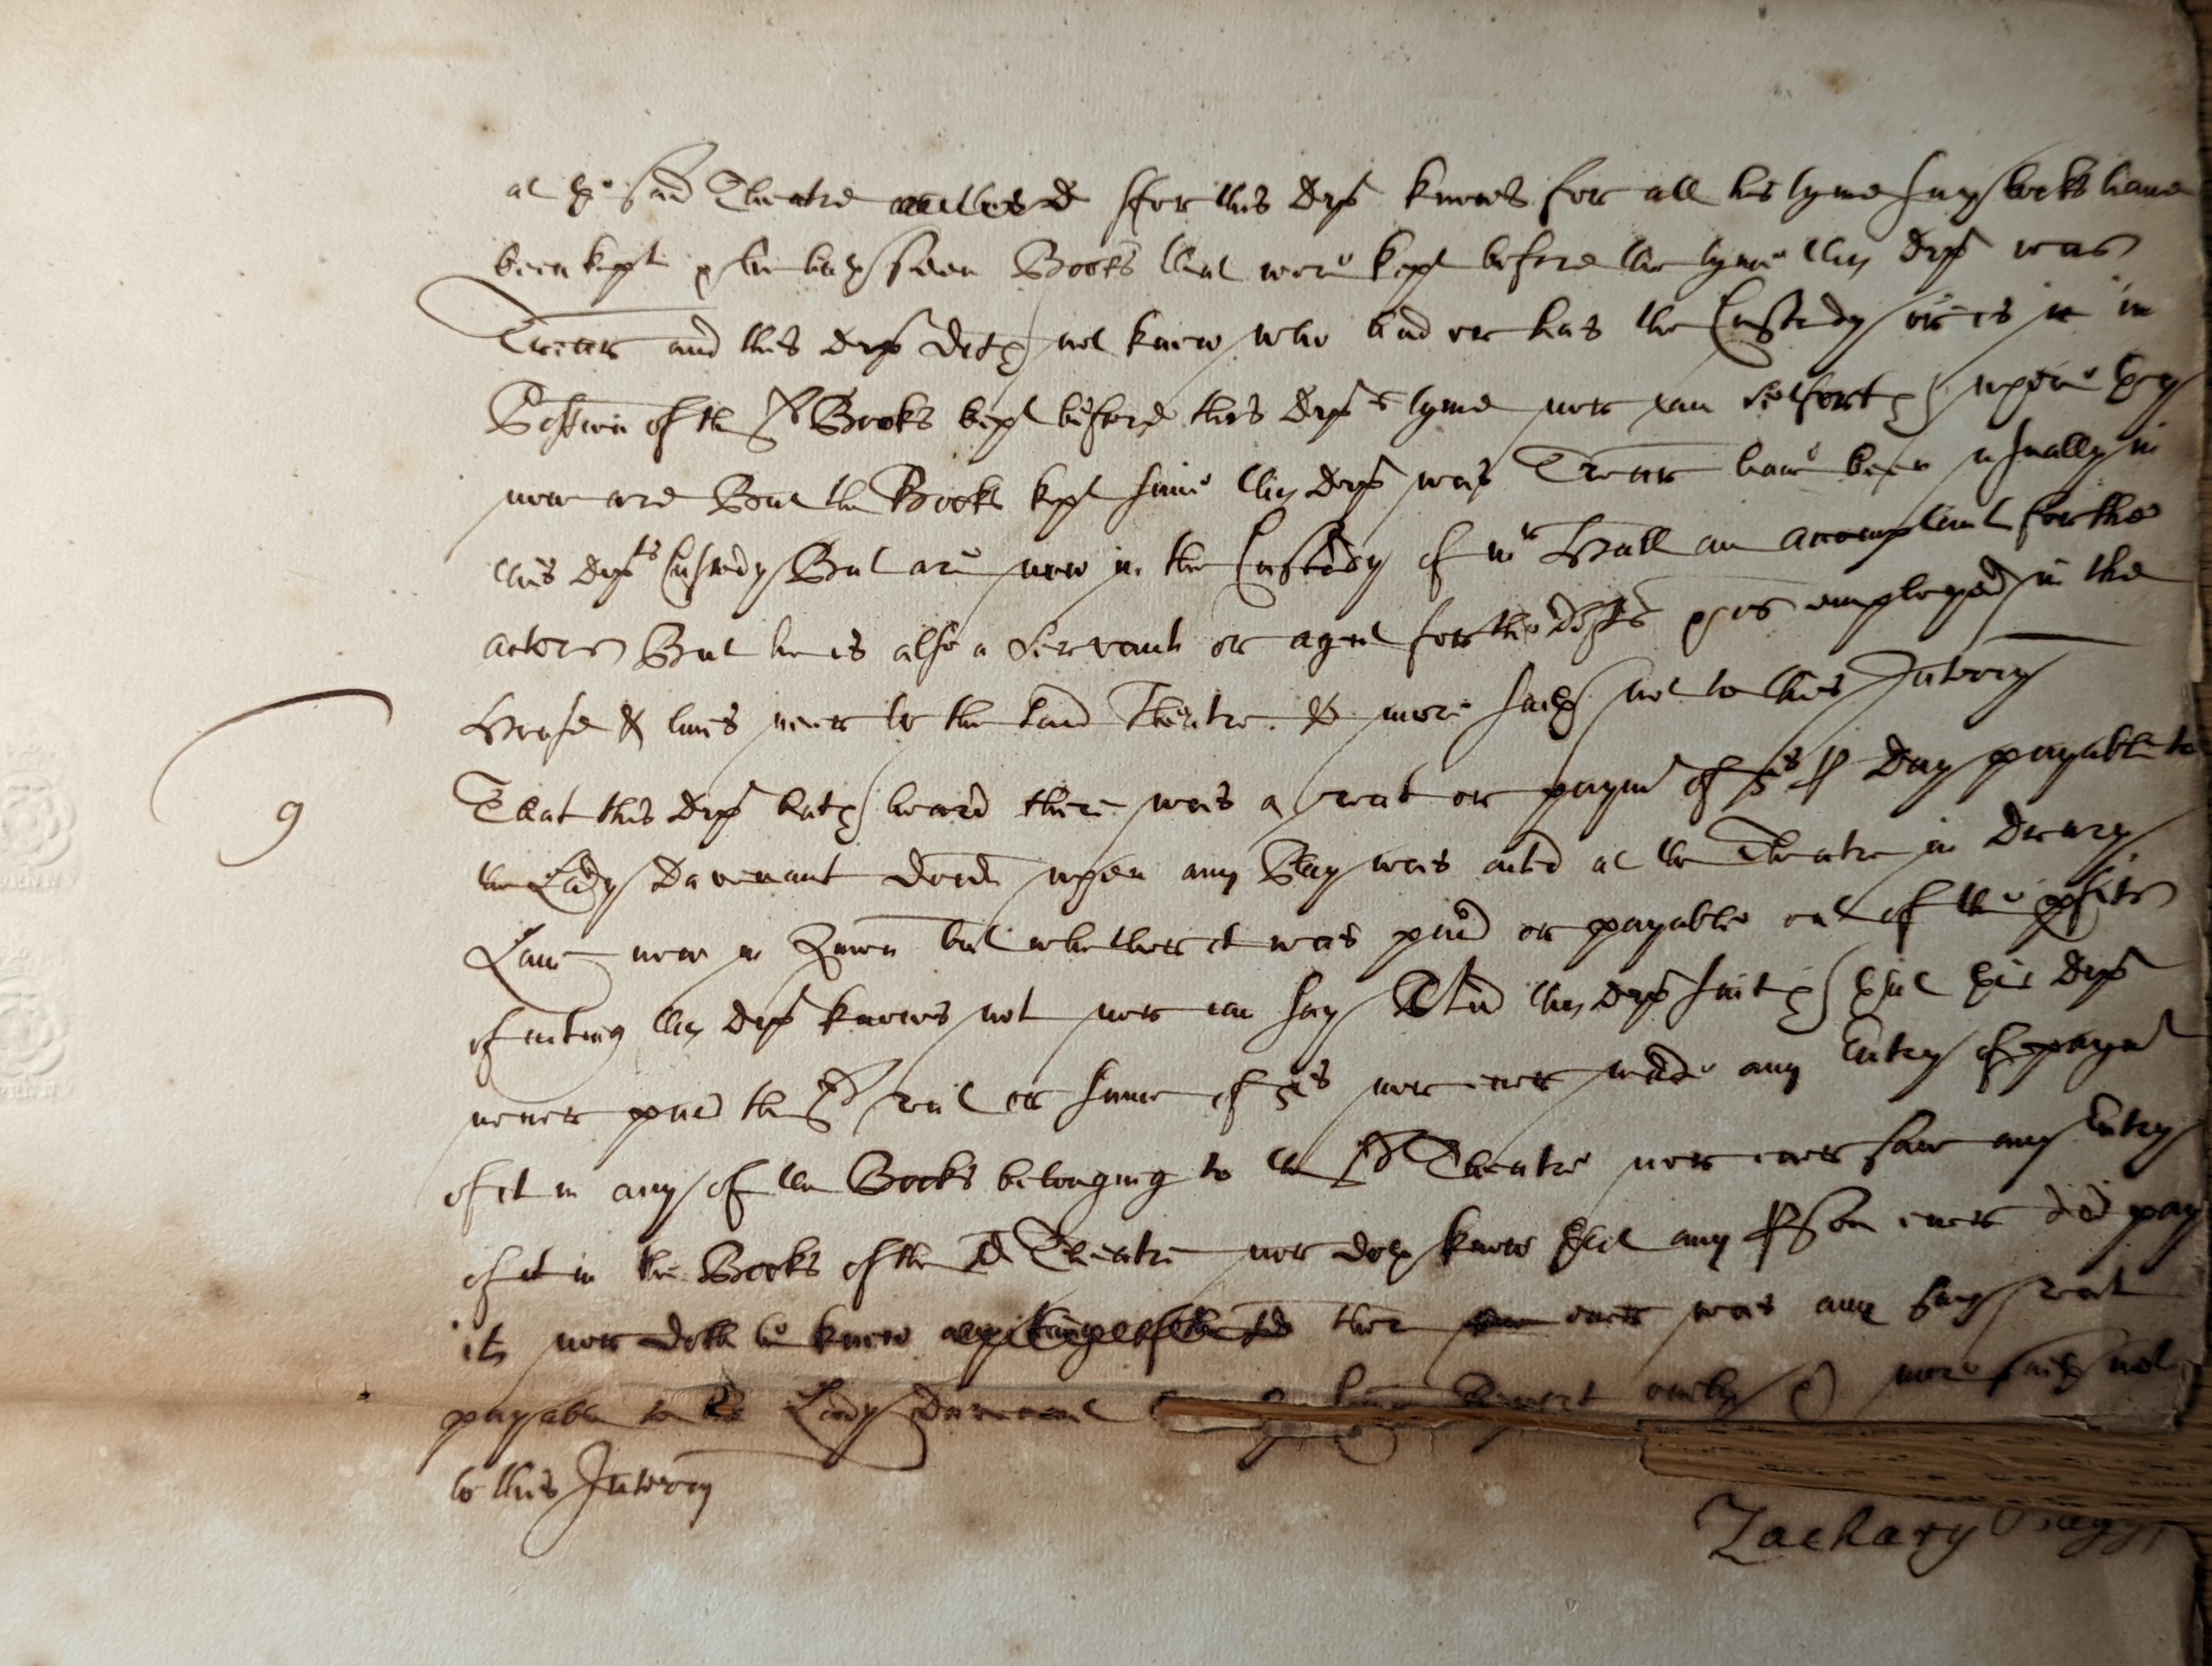 at ye said Theatre for this Dept knowes for all his tyme such bookes have
been kept & he hath seen Books that were kept before the tyme this Dept was
Trear and this Dept doth not know who had or has the Custody or is in
Possion of the sd Books kept before this Depts tyme nor can sett forth where they
now are But the Books kept since this Dept was Trear have been usually in
this Depts Custody But are now in the Custody of Mr Hall an accomptant for the
actors But he is also a Servant or agent for the Defts & is employed in the
House & lives neer to the said Theatre & more saith not to this Interry
9
That this Dept hath heard there was a rent or paymt of 5s p Day payable to
the Lady Davenant when any Play was acted at the Theatre in Drury
Lane now in but whether it was paid or payable out of the pfits
of acting this Dept knows not nor can say And this Dept saith that his Dept
never paid the sd rent or sume of 5s nor ever made any Entry of paymt
of it in any of the Books belonging to the sd Theatre nor ever saw any Entry
of it in the Books of the sd Theatre nor doth know that any pson ever did pay
it nor doth he know ther ever was any such rent
payable to the Lady Davenant Report onely & more saith not
to this Interry
Zachary Baggs